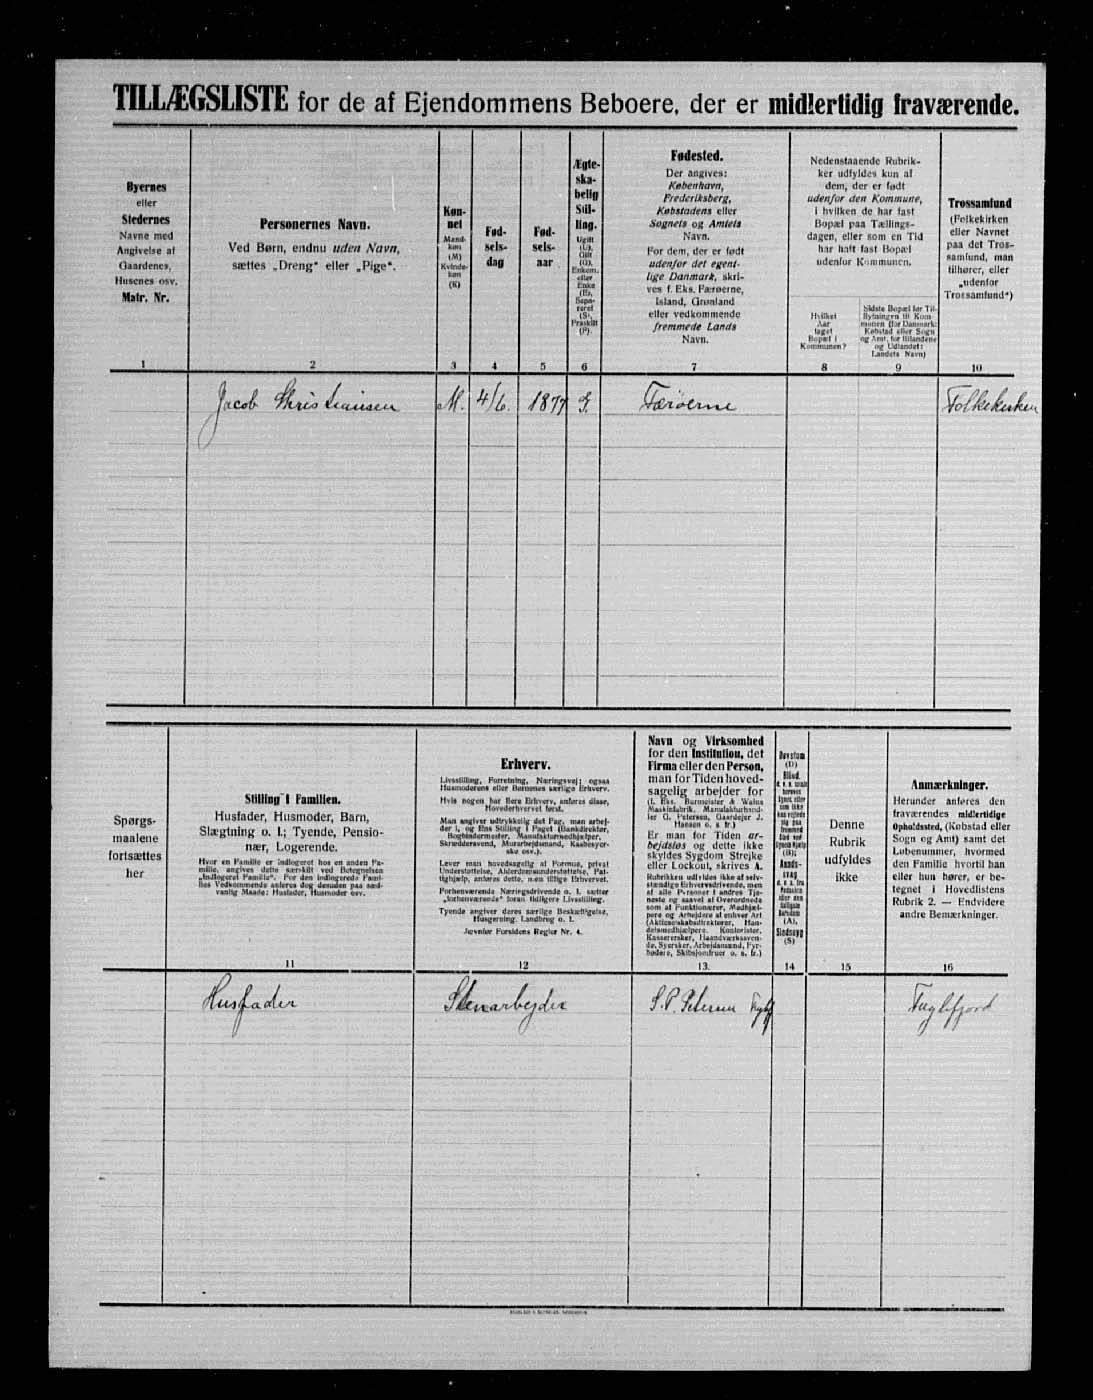 TILLÆGSLISTE for de af Ejendommens Beboere, der er midlertidig fraværende.
Byernes
eller
Stedernes
Navne med
Angivelse af
Gaardenes,
Husenes osv.
Matr. Nr.
Personernes Navn.
Ved Børn, endnu uden Navn,
sættes „Dreng“ eller „Pige“.
Køn-
net
Mand-
køn
(M)
Kvinde-
køn
(K)
Fød-
sels-
dag
Fød-
sels-
aar
Ægte-
ska-
belig
Stil-
ling.
Ugift
(U),
Gift
(G),
Enkem.
eller
Enke
(E),
Sepa-
reret
(S),
Fraskilt
(F).
Fødested.
Der angives:
København,
Frederiksberg,
Købstadens eller
Sognets og Amtets
Navn.
For dem, der er født
udenfor det egent-
lige Danmark, skri-
ves f. Eks. Færøerne,
Island, Grønland
eller vedkommende
fremmede Lands
Navn.
Nedenstaaende Rubrik-
ker udfyldes kun af
dem, der er født
udenfor den Kommune,
i hvilken de har fast
Bopæl paa Tællings-
dagen, eller som en Tid
har haft fast Bopæl
udenfor Kommunen.
Hvilket
Aar
taget
Bopæl i
Kommunen?
Sidste Bopæl før Til-
flytningen til Kom-
munen (for Danmark:
Købstad eller Sogn
og Amt, for Billandene
og Udlandet:
Landets Navn)
Trossamfund
(Folkekirken
eller Navnet
paa det Tros-
samfund, man
tilhører, eller
„udenfor
Trossamfund“)
1 2 3 4 5 6 7 8 9 10
Jacob Christiansen M. 4/6. 1877 G. Færøerne Folkekirken
Spørgs-
maalene
fortsættes
her
Stilling i Familien.
Husfader, Husmoder, Barn,
Slægtning o. l.; Tyende, Pensio-
nær, Logerende.
Hvor en Familie er indlogeret hos en anden Fa-
milie, angives dette særskilt ved Betegnelsen
„Indlogeret Familie“. For den indlogerede Fami-
lies Vedkommende anføres dog desuden paa sæd-
vanlig Maade: Husfader, Husmoder osv.
Erhverv.
Livsstilling, Forretning, Næringsvej; ogsaa
Husmoderens eller Børnenes særlige Erhverv.
Hvis nogen har flere Erhverv, anføres disse,
Hovederhvervet først.
Man angiver udtrykkelig det Fag, man arbej-
der i, og Ens Stilling i Faget (Bankdirektør,
Bogbindermester, Manufakturmedhjælper,
Skræddersvend, Murarbejdsmand, Kasbesyer-
ske osv.).
Lever man hovedsagelig af Formue, privat
Understøttelse, Alderdomsunderstøttelse, Fat-
tighjælp, anføres dette, men tillige Erhvervet.
Forhenværende Næringsdrivende o. l. sætter
„forhenværende“ foran tidligere Livsstilling.
Tyende angiver deres særlige Beskæftigelse,
Husgerning, Landbrug o. l.
Jævnfør Forsidens Regler Nr. 4.
Navn og Virksomhed
for den Institution, det
Firma eller den Person,
man for Tiden hoved-
sagelig arbejder for
(f. Eks. Burmeister & Wains
Maskinfabrik, Manufakturhand-
ler O. Petersen, Gaardejer J.
Hansen o. s. fr.)
Er man for Tiden ar-
bejdsløs og dette ikke
skyldes Sygdom Strejke
eller Lockout, skrives A.
Rubrikken udfyldes ikke af selv-
stændige Erhvervsdrivende, men
af alle Personer i andres Tje-
neste og saavel af Overordnede
som af Funktionærer, Medhjæl-
pere og Arbejdere af enhver Art
(Aktieselskabsdirektører, Han-
delsmedhjælpere, Kontorister,
Kasserersker, Haandværkssven-
de, Syersker, Arbejdsmænd, Fyr-
bødere, Skibsjomfruer o. s. fr.)
Døvstum
(D)
Blind,
Sindssyg
(S)
Denne
Rubrik
udfyldes
ikke
Anmærkninger.
Herunder anføres den
fraværendes midlertidige
Opholdssted, (Købstad eller
Sogn og Amt) samt det
Løbenummer, hvormed
den Familie hvortil han
eller hun hører, er be-
tegnet i Hovedlistens
Rubrik 2. — Endvidere
andre Bemærkninger.
11 12 13. 14 15 16
Husfader Stenarbejder S. P. Petersen Fuglefjord